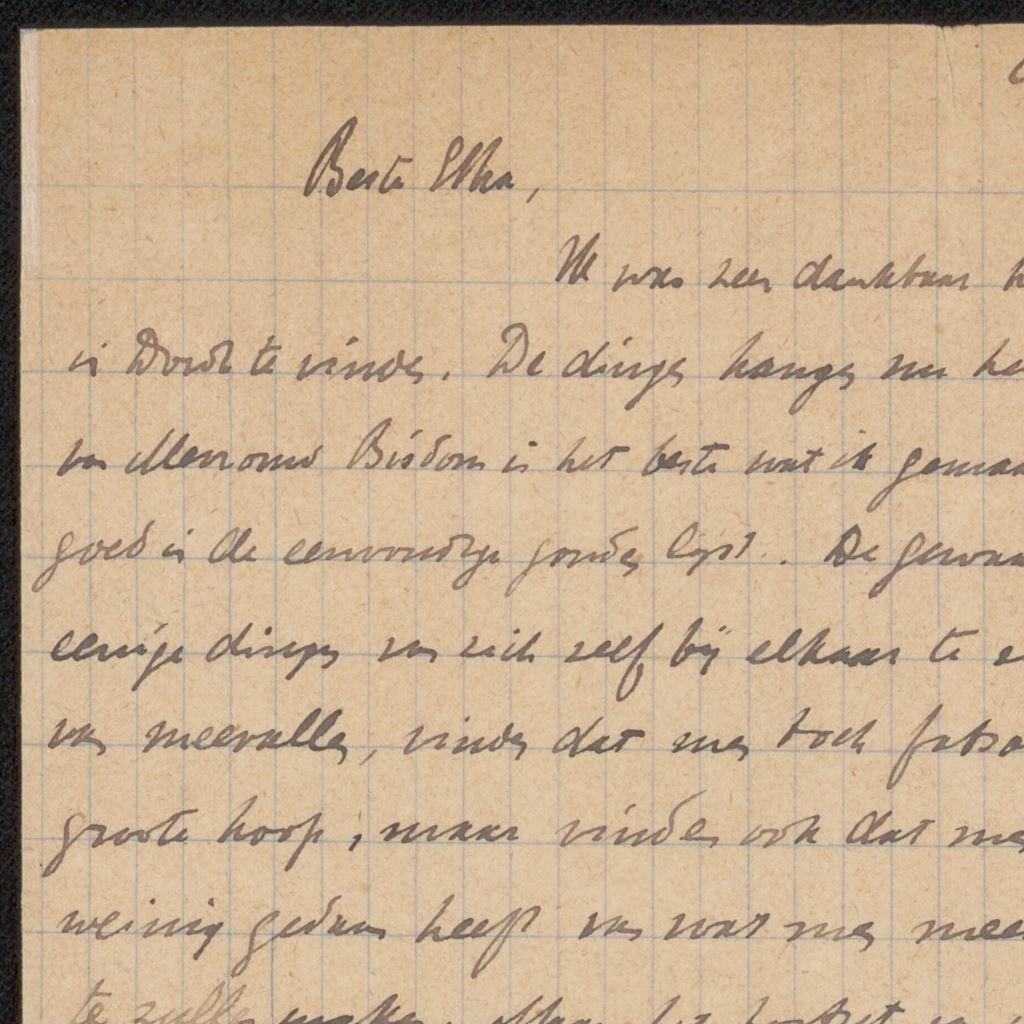 Beste Elka,
Ik was zeer dankbaar
in Dordt te vinden. De dingen hangen nu
van Mevrouw Bisdom is het beste wat ik
goed is de eenvoudige gouden lijst. De
eenige dingen van zich zelf bij elkaar te
van meevallen, vinden dat men toch
groote hoop, maar vinden ook dat men
weinig gedaan heeft van wat men
te zullen maken. Maar het